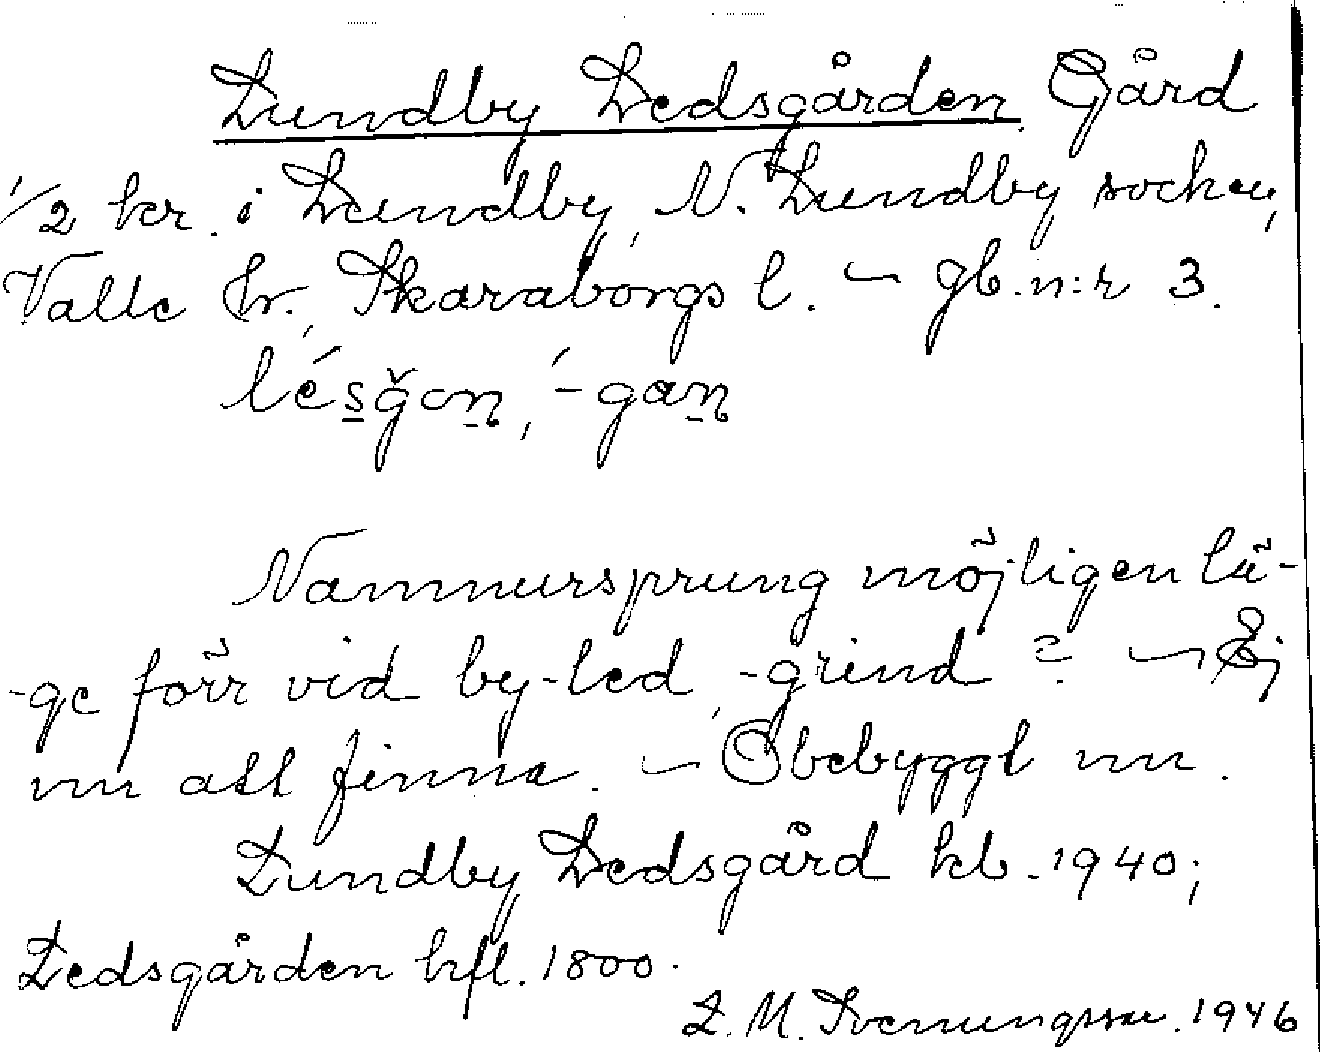 Lundby Ledsgården Gård
1/2 kr. i Lundby, N. Lundby socken,
Valle hr., Skaraborgs l. – gb.n:r 3.
lésgon, -gan
Namnursprung möjligen lä-
-ge förr vid by-led, -grind? – Ej
nu att finna. – Obebyggt nu.
Lundby Ledsgård kb. 1940;
Ledsgården hfl. 1800.
L. M. Svenungsson. 1946